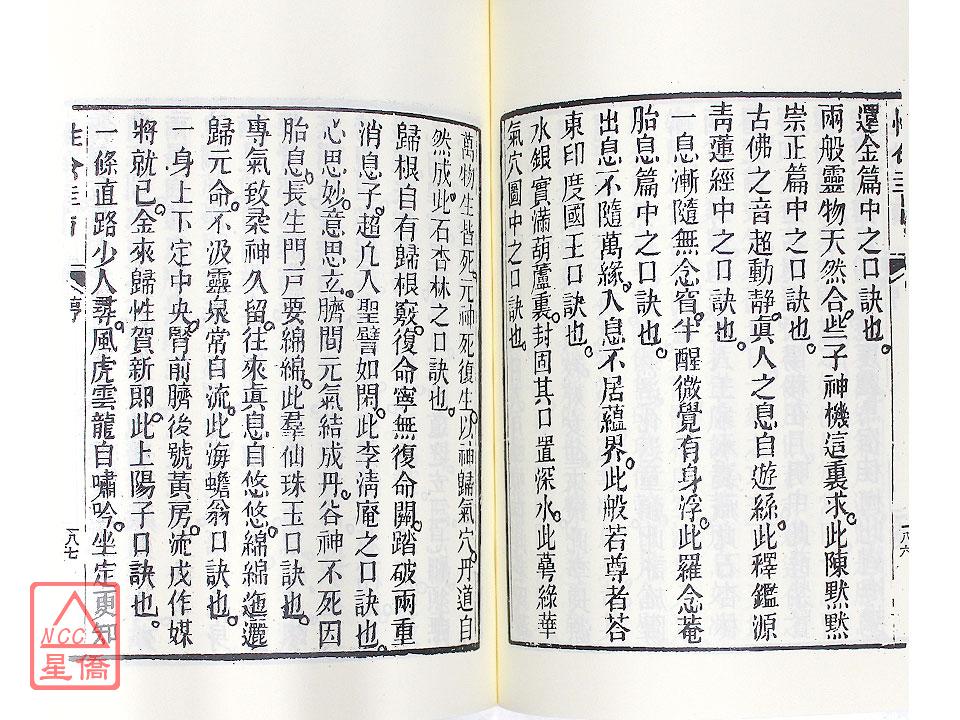 還金篇中之口訣也。
兩般靈物天然合。些子神機這裏求。此陳默默
崇正篇中之口訣也。
古佛之音超動靜。眞人之息自遊絲。此釋鑑源
靑蓮經中之口訣也。
一息漸隨無念杳。半醒微覺有身浮。此羅念菴
胎息篇中之口訣也。
出息不隨萬緣。入息不居蘊界。此般若尊者荅
東印度國王口訣也。
水銀實滿葫蘆裏。封固其口置深水。此萼綠華
氣穴圖中之口訣也。
一八六
萬物生皆死。元神死復生。以神歸氣穴。丹道自
然成。此石杏林之口訣也。
歸根自有歸根竅。復命寧無復命關。踏破兩重
消息子。超凡入聖譬如閑。此李淸庵之口訣也。
心思妙。意思立。臍間元氣結成丹。谷神不死因
胎息。長生門戸要綿綿。此羣仙珠玉口訣也。
專氣致柔神久留。往來眞息自悠悠。綿綿迤邐
歸元命。不汲靈泉常自流。此海蟾翁口訣也。
一身上下定中央。腎前臍後號黃房。流戊作媒
將就已。金來歸性賀新郎。此上陽子口訣也。
一條直路少人尋。風虎雲龍自嘯吟。坐定更知
一八七
NCC
星僑